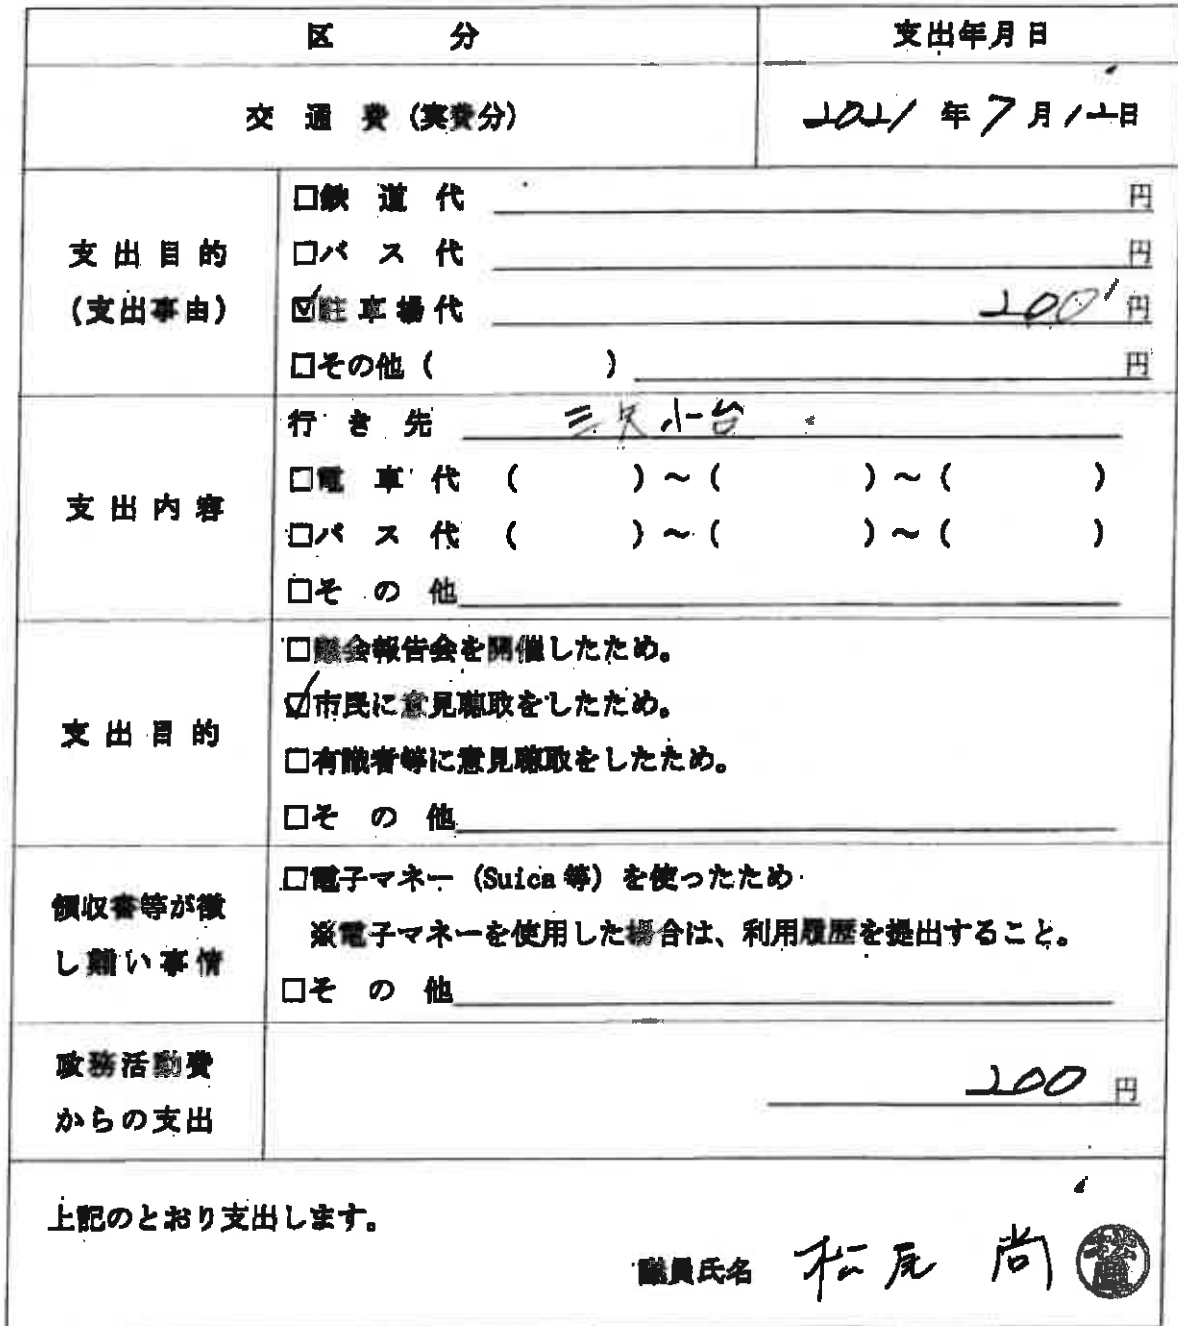 区 分 支出年月日
交 通 費 (実費分) 2021 年 7 月 12 日
支出目的
(支出事由)
□鉄 道 代 円
□バ ス 代 円
☑駐 車 場 代 200 円
□その他 ( ) 円
支出内容
行 き 先
□電 車 代 ( ) ～ ( ) ～ ( )
□バ ス 代 ( ) ～ ( ) ～ ( )
□そ の 他
支出目的
□議会報告会を開催したため。
☑市民に意見聴取をしたため。
□有識者等に意見聴取をしたため。
□そ の 他
領収書等が徴
し難い事情
□電子マネー (Suica 等) を使ったため
※電子マネーを使用した場合は、利用履歴を提出すること。
□そ の 他
政務活動費
からの支出
200 円
上記のとおり支出します。
議員氏名 松尾 尚